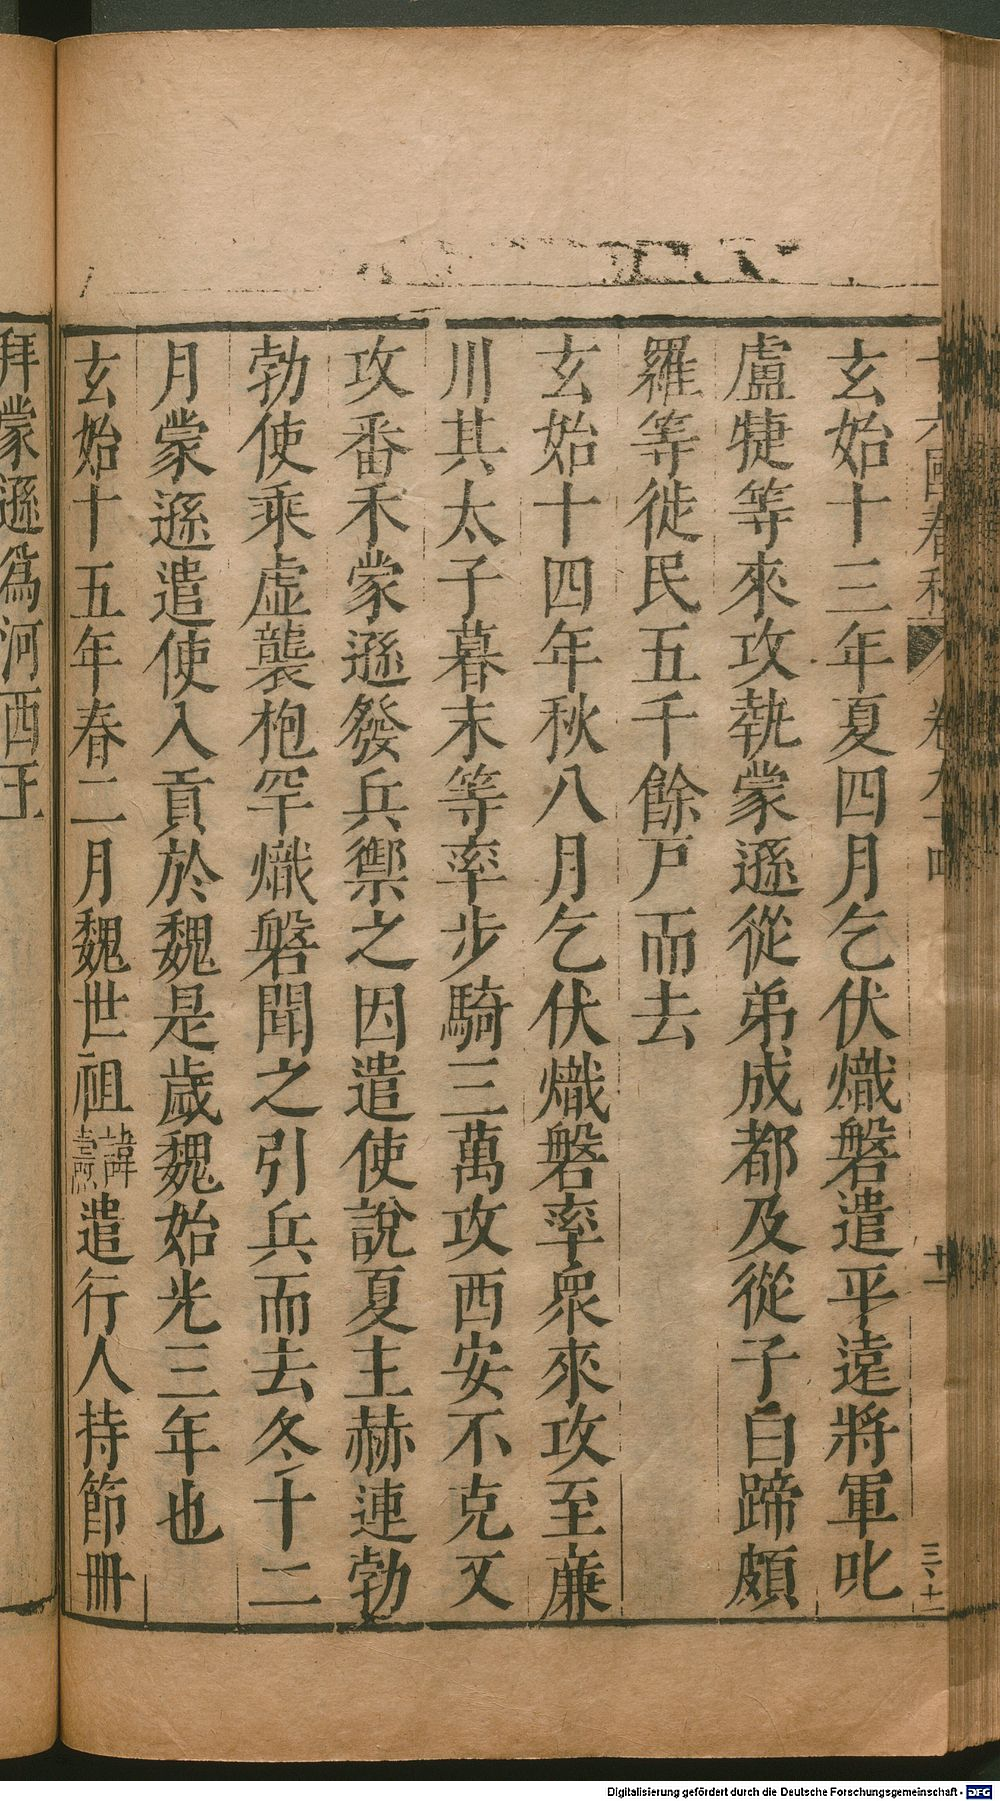 玄始十三年夏四月乞伏熾磐遣平遠將軍叱
盧犍等來攻執蒙遜從弟成都及從子白蹄頗
羅等徙民五千餘戸而去
玄始十四年秋八月乞伏熾磐率眾來攻至亷
川其太子暮末等率步騎三萬攻西安不克又
攻番禾蒙遜發兵禦之因遣使說夏主赫連勃
勃使乘虛襲枹罕熾磐聞之引兵而去冬十二
月蒙遜遣使入貢於魏是歲魏始光三年也
玄始十五年春二月魏世祖諱燾遣行人持節冊
拜蒙遜爲河西王
Digitalisierung gefördert durch die Deutsche Forschungsgemeinschaft - DFG